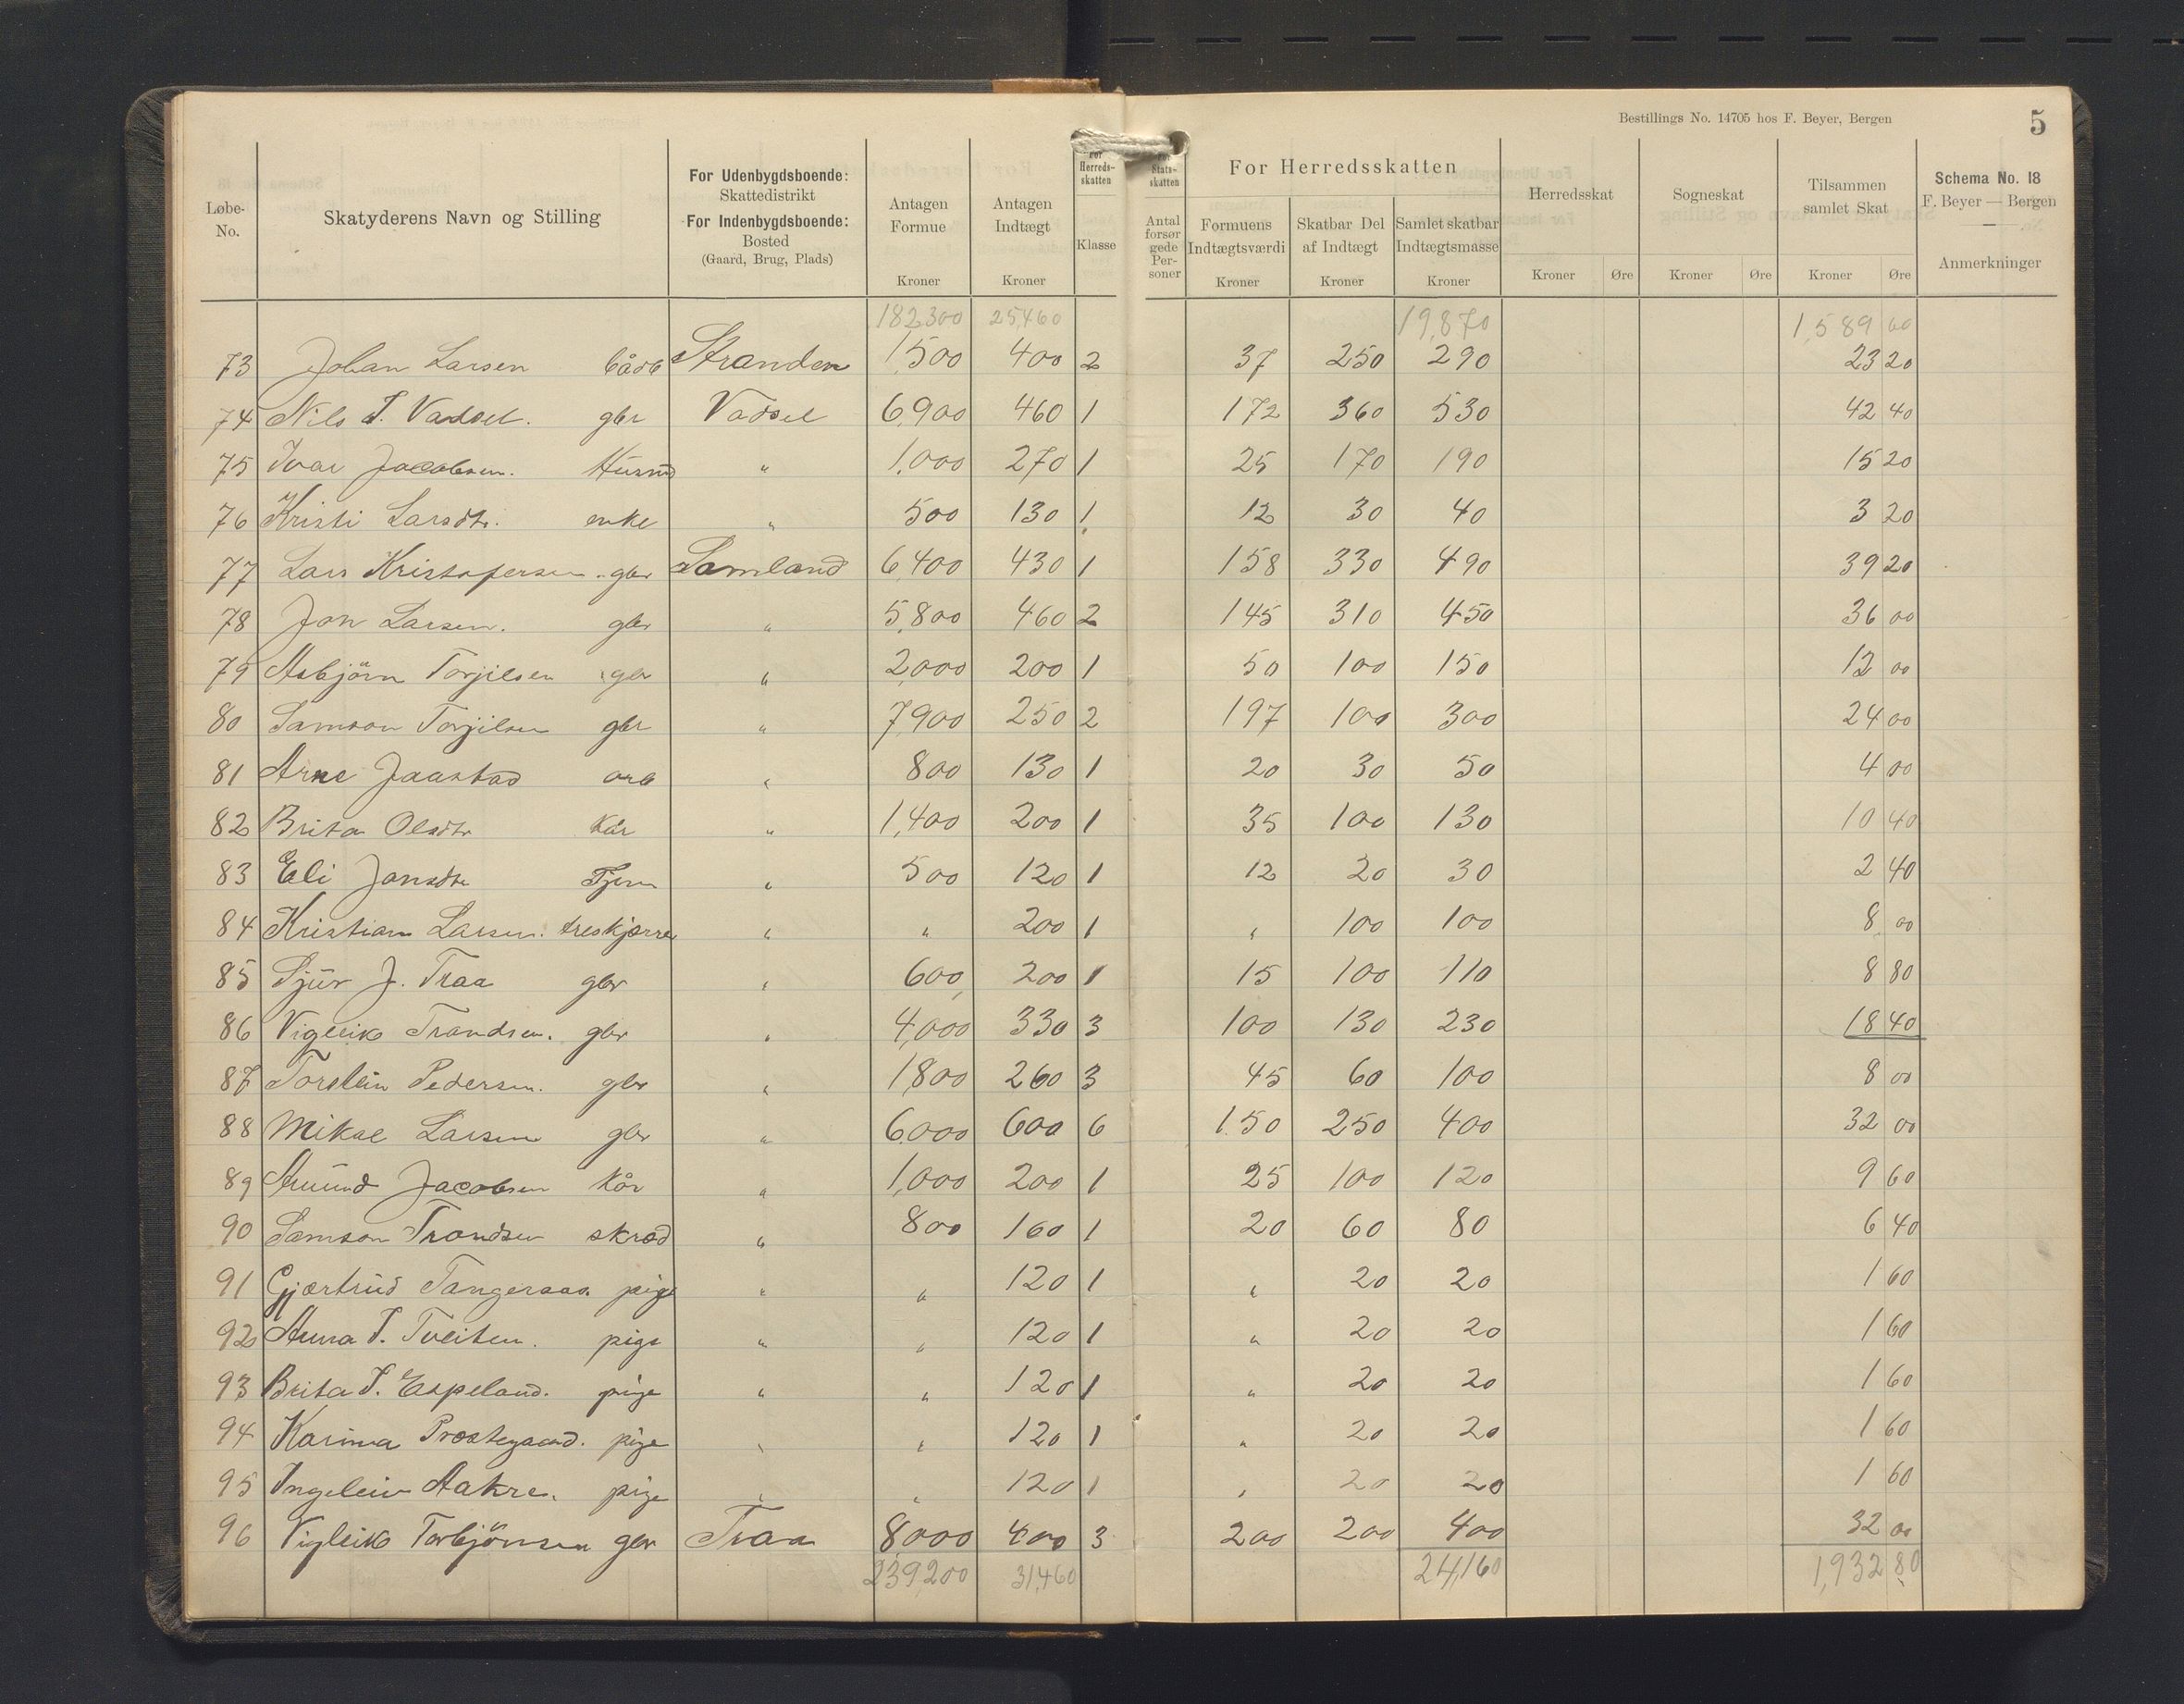 Bestillings No. 14705 hos F. Beyer, Bergen
5
Løbe-No. Skatyderens Navn og Stilling For Udenbygdsboende: Skattedistrikt For Indenbygdsboende: Bosted (Gaard, Brug, Plads) Antagen Formue Kroner Antagen Indtægt Kroner For Herreds-skatten Klasse For Stats-skatten Antal forsørgede Personer For Herredsskatten Formuens Indtægtsværdi Kroner Skatbar Del af Indtægt Kroner Samlet skatbar Indtægtsmasse Kroner Herredsskat Kroner Øre Sogneskat Kroner Øre Tilsammen samlet Skat Kroner Øre Schema No. 18 F. Beyer — Bergen Anmerkninger
182,300 25,460 19,870 1,589 60
73 Johan Larsen bådb Stranden 1,500 400 2 37 250 290 23 20
74 Nils T. Vadsel. gbr Vadsel 6,900 460 1 172 360 530 42 40
75 Ivar Jacobsen. Husmd " 1,000 270 1 25 170 190 15 20
76 Kristi Larsdtr. enke " 500 130 1 12 30 40 3 20
77 Lars Kristofersen gbr Samland 6,400 430 1 158 330 490 39 20
78 Jon Larsen. gbr " 5,800 460 2 145 310 450 36 00
79 Asbjörn Torjilsen gbr " 2,000 200 1 50 100 150 12 00
80 Samson Torjilsen gbr " 7,900 250 2 197 100 300 24 00
81 Arne Jaastad arb " 800 130 1 20 30 50 4 00
82 Brita Olsdtr Kår " 1,400 200 1 35 100 130 10 40
83 Eli Jonsdtr Tjen " 500 120 1 12 20 30 2 40
84 Kristian Larsen. treskjærer " " 200 1 " 100 100 8 00
85 Sjur J. Traa gbr " 600 200 1 15 100 110 8 80
86 Vigleik Trondsen. gbr " 4,000 330 3 100 130 230 18 40
87 Torstein Pedersen. gbr " 1,800 260 3 45 60 100 8 00
88 Mikal Larsen gbr " 6,000 600 6 150 250 400 32 00
89 Amund Jacobsen Kår " 1,000 200 1 25 100 120 9 60
90 Samson Trondsen skræd " 800 160 1 20 60 80 6 40
91 Gjertrud Tangeraas. pige " " 120 1 " 20 20 1 60
92 Anna T. Tveiten. pige " " 120 1 " 20 20 1 60
93 Brita T. Espeland. pige " " 120 1 " 20 20 1 60
94 Karina Prestegaard. pige " " 120 1 " 20 20 1 60
95 Ingeleiv Aakre. pige " " 120 1 " 20 20 1 60
96 Vigleik Torbjönsen gbr Traa 8,000 400 3 200 200 400 32 00
239,200 31,460 24,160 1,932 80